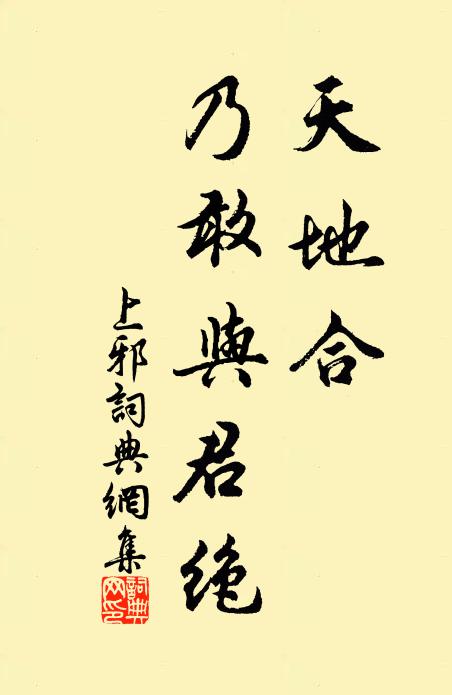 天地合
乃敢與君絕
上邪詞典網集
詞典網印